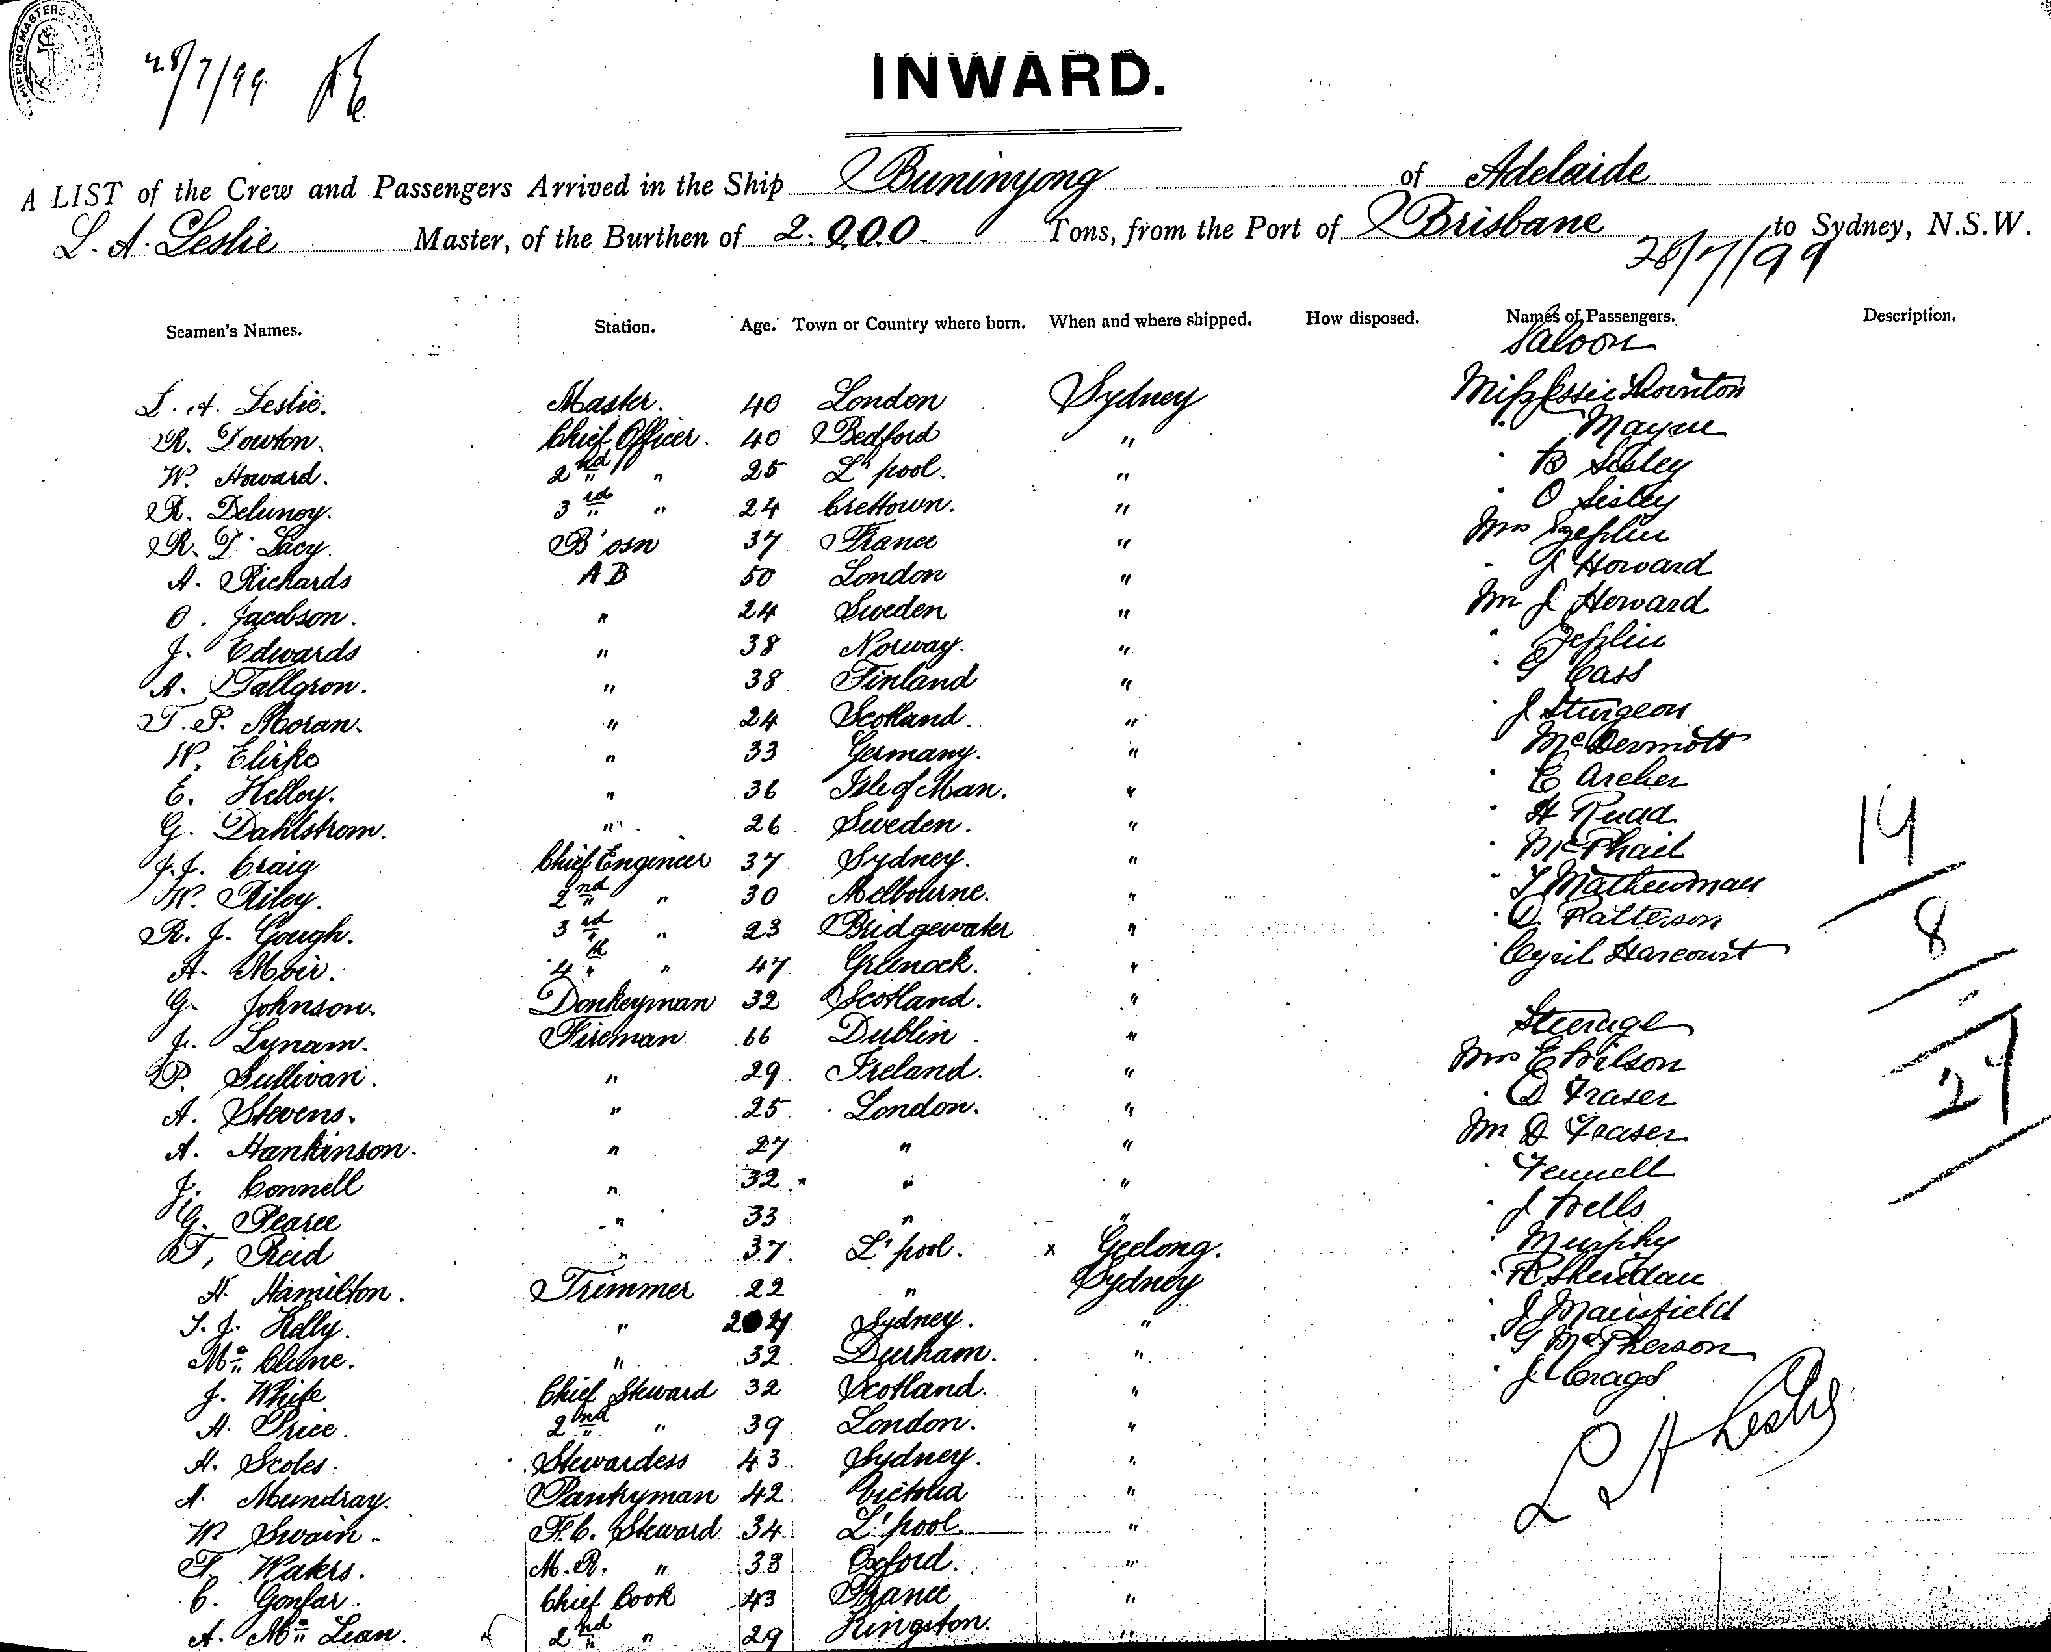 28/7/99
INWARD.
A LIST of the Crew and Passengers Arrived in the Ship Buninyong of Adelaide
L. A. Leslie Master, of the Burthen of 2.000. Tons, from the Port of Brisbane to Sydney, N.S.W.
28/7/99
Seamen's Names. Station. Age. Town or Country where born. When and where shipped. How disposed. Names of Passengers. Description.
Saloon
L. A. Leslie. Master. 40 London Sydney Miss Jessie Thornton
R. Dowton. Chief Officer. 40 Bedford " " Mayne
W. Howard. 2nd " 25 L'pool. " " B Sisley
R. Delunoy. 3rd " 24 " " O Sisley
R. D. Lacy. B'osn 37 France " Mrs
A. Richards AB 50 London " " J Howard
O. Jacobson. " 24 Sweden " Mr J Howard
J. Edwards " 38 Norway. " "
A. Tallgron. " 38 Finland " " G Cass
T. P. Moran. " 24 Scotland. " " J Sturgeon
W. " 33 Germany. " " McDermott
E. Kelloy. " 36 Isle of Man. " " E Archer
G. Dahlstrom. " 26 Sweden. " " H Ruad
14
J. J. Craig Chief Engineer 37 Sydney. " " McPhail
W. Riley. 2nd " 30 Melbourne. " " T Mathewman
R. J. Gough. 3rd " 23 Bridgewater " " D Patterson
8
A. Moir. 4th " 47 Greenock. " " Cyril Harcourt
G. Johnson. Donkeyman 32 Scotland. "
J. Lynam. Fireman 66 Dublin " Steerage
P. Sullivan. " 29 Ireland. " Mrs E Wilson
A. Stevens. " 25 London. " " D Fraser
24
A. Hankinson. " 27 " " Mr D Fraser
J. Connell " 32 " " " Fennell
G. Pearce " 33 " " " J Wells
T, Reid " 37 L'pool. x Geelong. " Murphy
H. Hamilton. Trimmer 22 " Sydney " R Sheridan
T. J. Kelly. " Sydney. " " J Mansfield
Mc Clune. " 32 Durham. " " G McPherson
J. White Chief Steward 32 Scotland. " " J Crags
A. Price. 2nd " 39 London. "
A. Scoles. Stewardess 43 Sydney. "
A. Mundray. Pantryman 42 Victoria "
L A Leslie
W Swain. F.C. Steward 34 L'pool "
T. Waters. M. R. " 33 Oxford. "
C. Gonfar. Chief Cook 43 France "
A. Mc Lean. 2nd " 29 Kingston. "